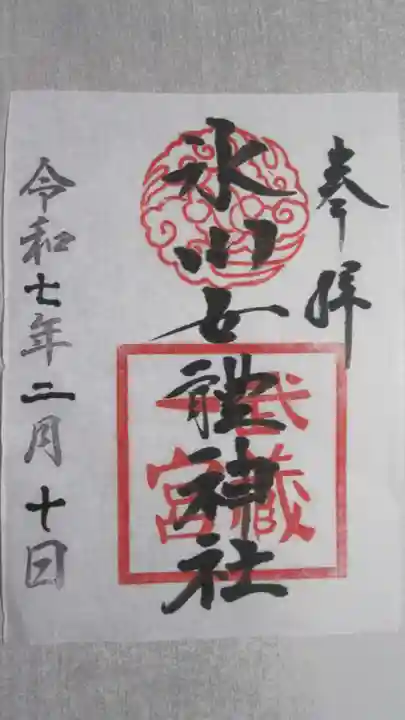 奉拝
氷川女體神社
武蔵一宮
令和七年二月十日